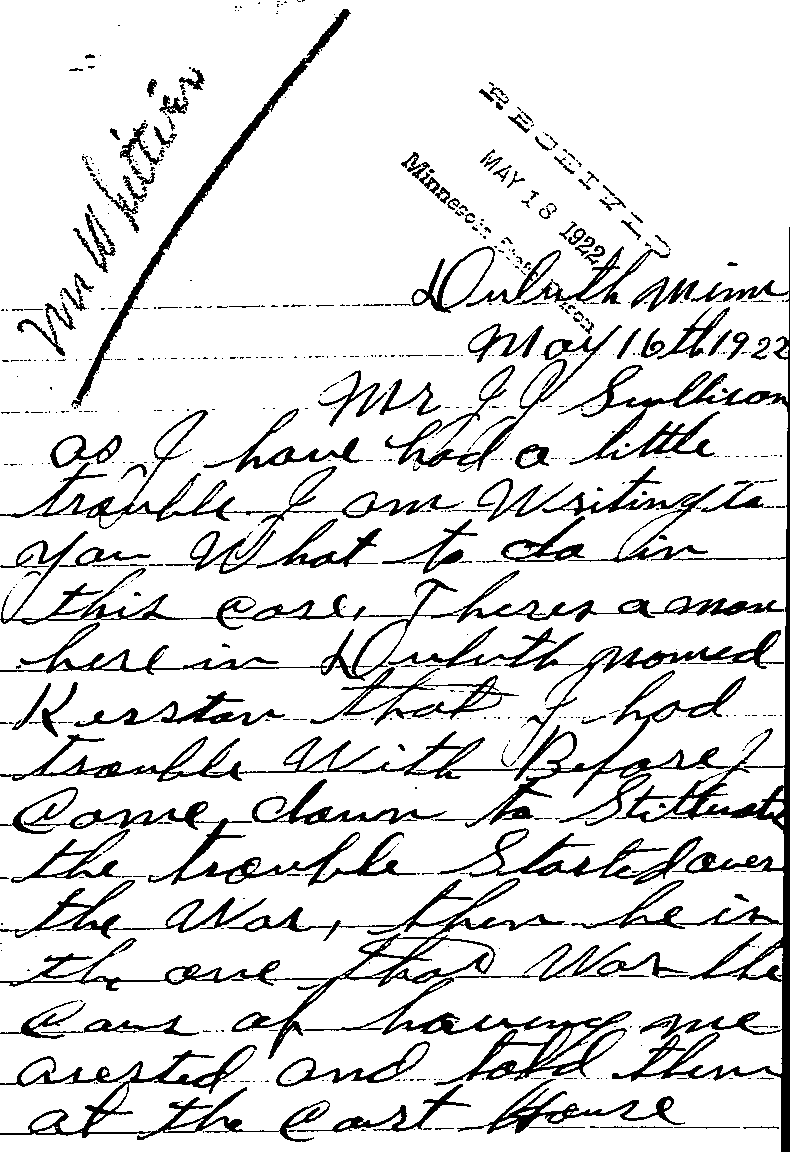 Mr Whittier
RECEIVED
MAY 18 1922
Minnesota State Prison
Duluth Minn
May 16th 1922
Mr J J Sullivan
as I have had a little
trouble I am Writing to
you What to do in
this case, Theres a man
here in Duluth named
Kerstan that I had
trouble With Before I
Come down to Stillwater
the trouble Started over
the War, then he is
the one that Was the
Caus of having me
arested and told them
at the Cort House